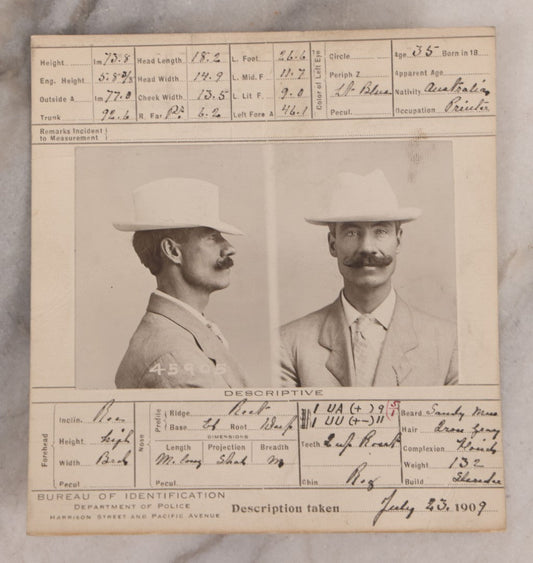 Height 1m 73.8 Head Length 18.2 L. Foot 26.6 Circle Age 35 Born in 18
Eng. Height 5.8 3/8 Head Width 14.9 L. Mid. F 11.7 Color of Left Eye Periph Z Apparent Age
Outside A 1m 77.0 Cheek Width 13.5 L. Lit F. 9.0 Lt Blue Nativity Australia
Trunk 92.6 R. Ear 6.2 Left Fore A 46.1 Pecul. Occupation Printer
Remarks Incident to Measurement
45905
DESCRIPTIVE
Forehead
Inclin. Rec
Height high
Width
Pecul.
Nose
Profile
Ridge Rect
Base Root Deep
DIMENSIONS
Length Projection Breadth
M. long M
Pecul.
1 UA (+) 9
1 UU (+-) 11
Teeth 2 up
Chin
Beard Sandy
Hair Gray
Complexion
Weight 132
Build Slender
BUREAU OF IDENTIFICATION
DEPARTMENT OF POLICE
HARRISON STREET AND PACIFIC AVENUE
Description taken July 23. 1909